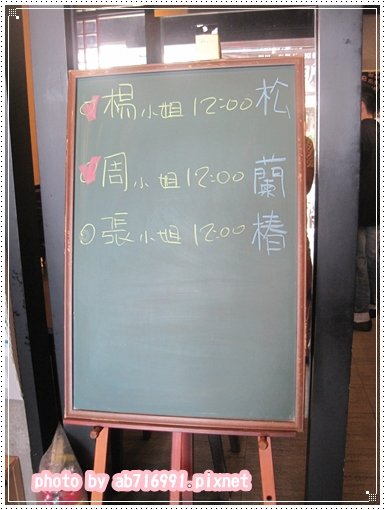 楊小姐 12:00 松
周小姐 12:00 蘭
張小姐 12:00 椿
photo by ab716991.pixnet